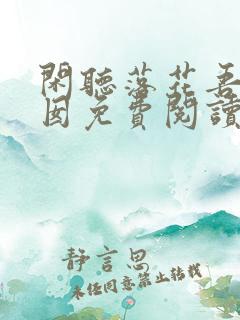 閑聽落花吾
囡免費閱讀
靜言思
未经同意禁止转载